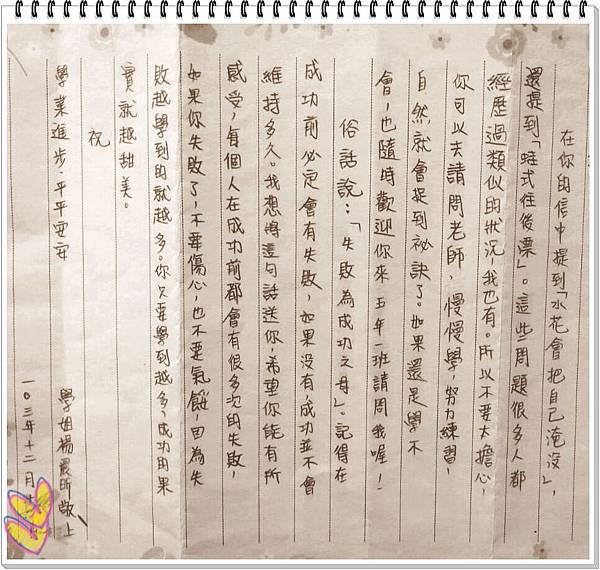 在你的信中提到「水花會把自己淹沒」，
還提到「蛙式往後漂」。這些問題很多人都
經歷過類似的狀況，我也有。所以不要太擔心，
你可以去請問老師，慢慢學，努力練習，
自然就會捉到祕訣了。如果還是學不
會，也隨時歡迎你來五年一班請問我喔！
俗話說：「失敗為成功之母」。記得在
成功前必定會有失敗，如果沒有，成功並不會
維持多久。我想將這句話送你，希望你能有所
感受，每個人在成功前都會有很多次的失敗，
如果你失敗了，不要傷心，也不要氣餒，因為失
敗越學到的就越多。你欠要學到越多，成功的果
實就越甜美。
祝
學業進步、平平安安
學姐楊 敬上
一〇三年十二月